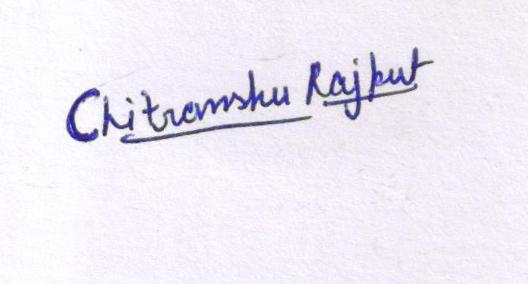 Chitramshu Rajput